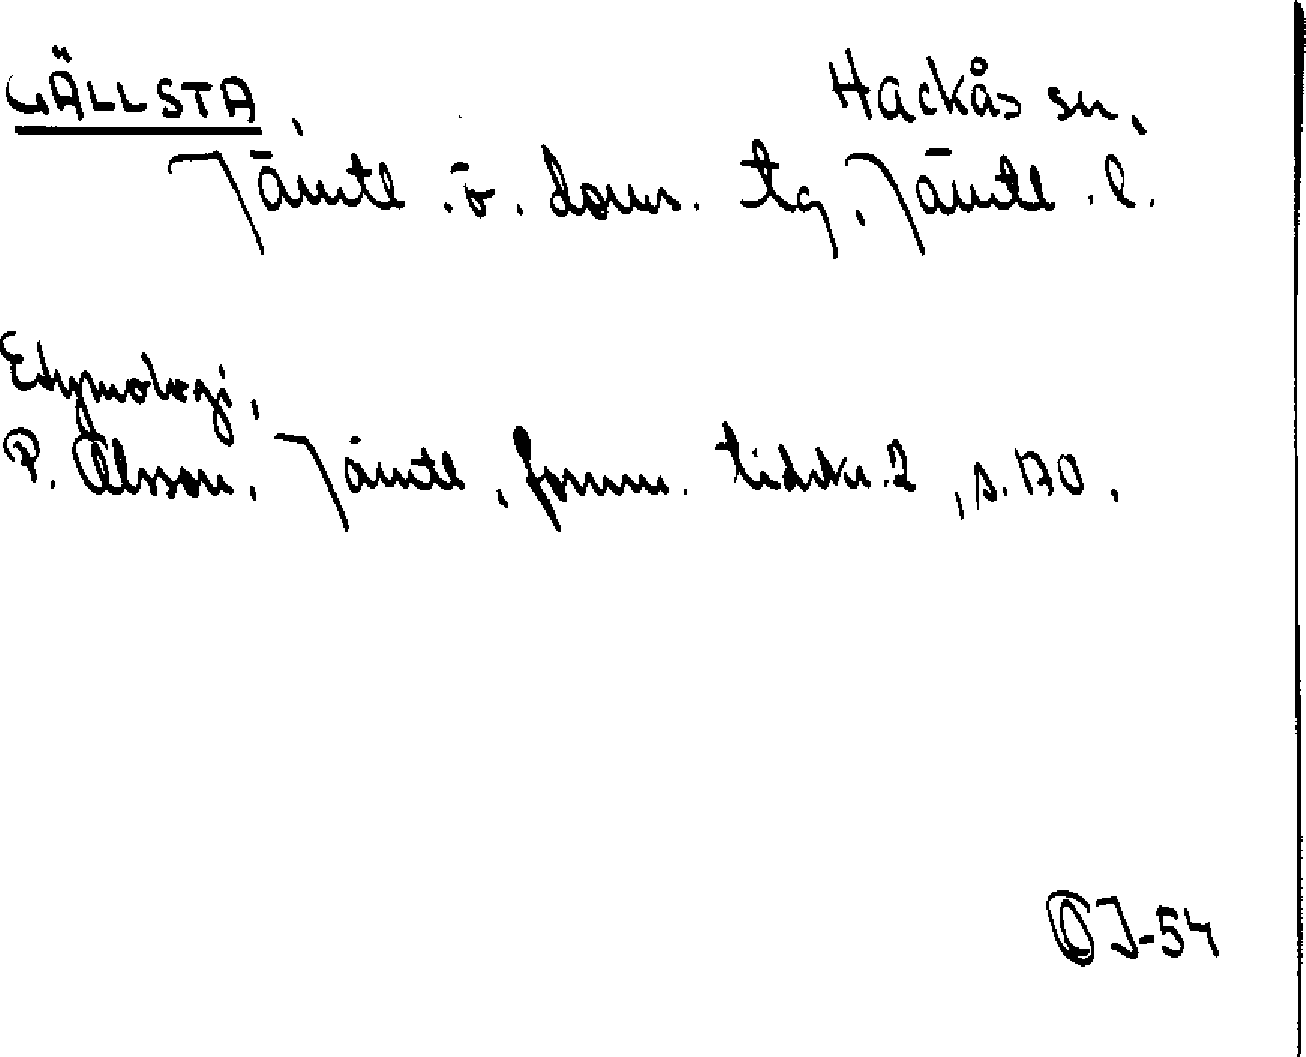 GÄLLSTA, Hackås sn,
Jämtl. ö. doms. tg, Jämtl. l.
Etymologi,
P. Olsson, Jämtl, fornm. tidskr. 2, s. 170.
OJ-54